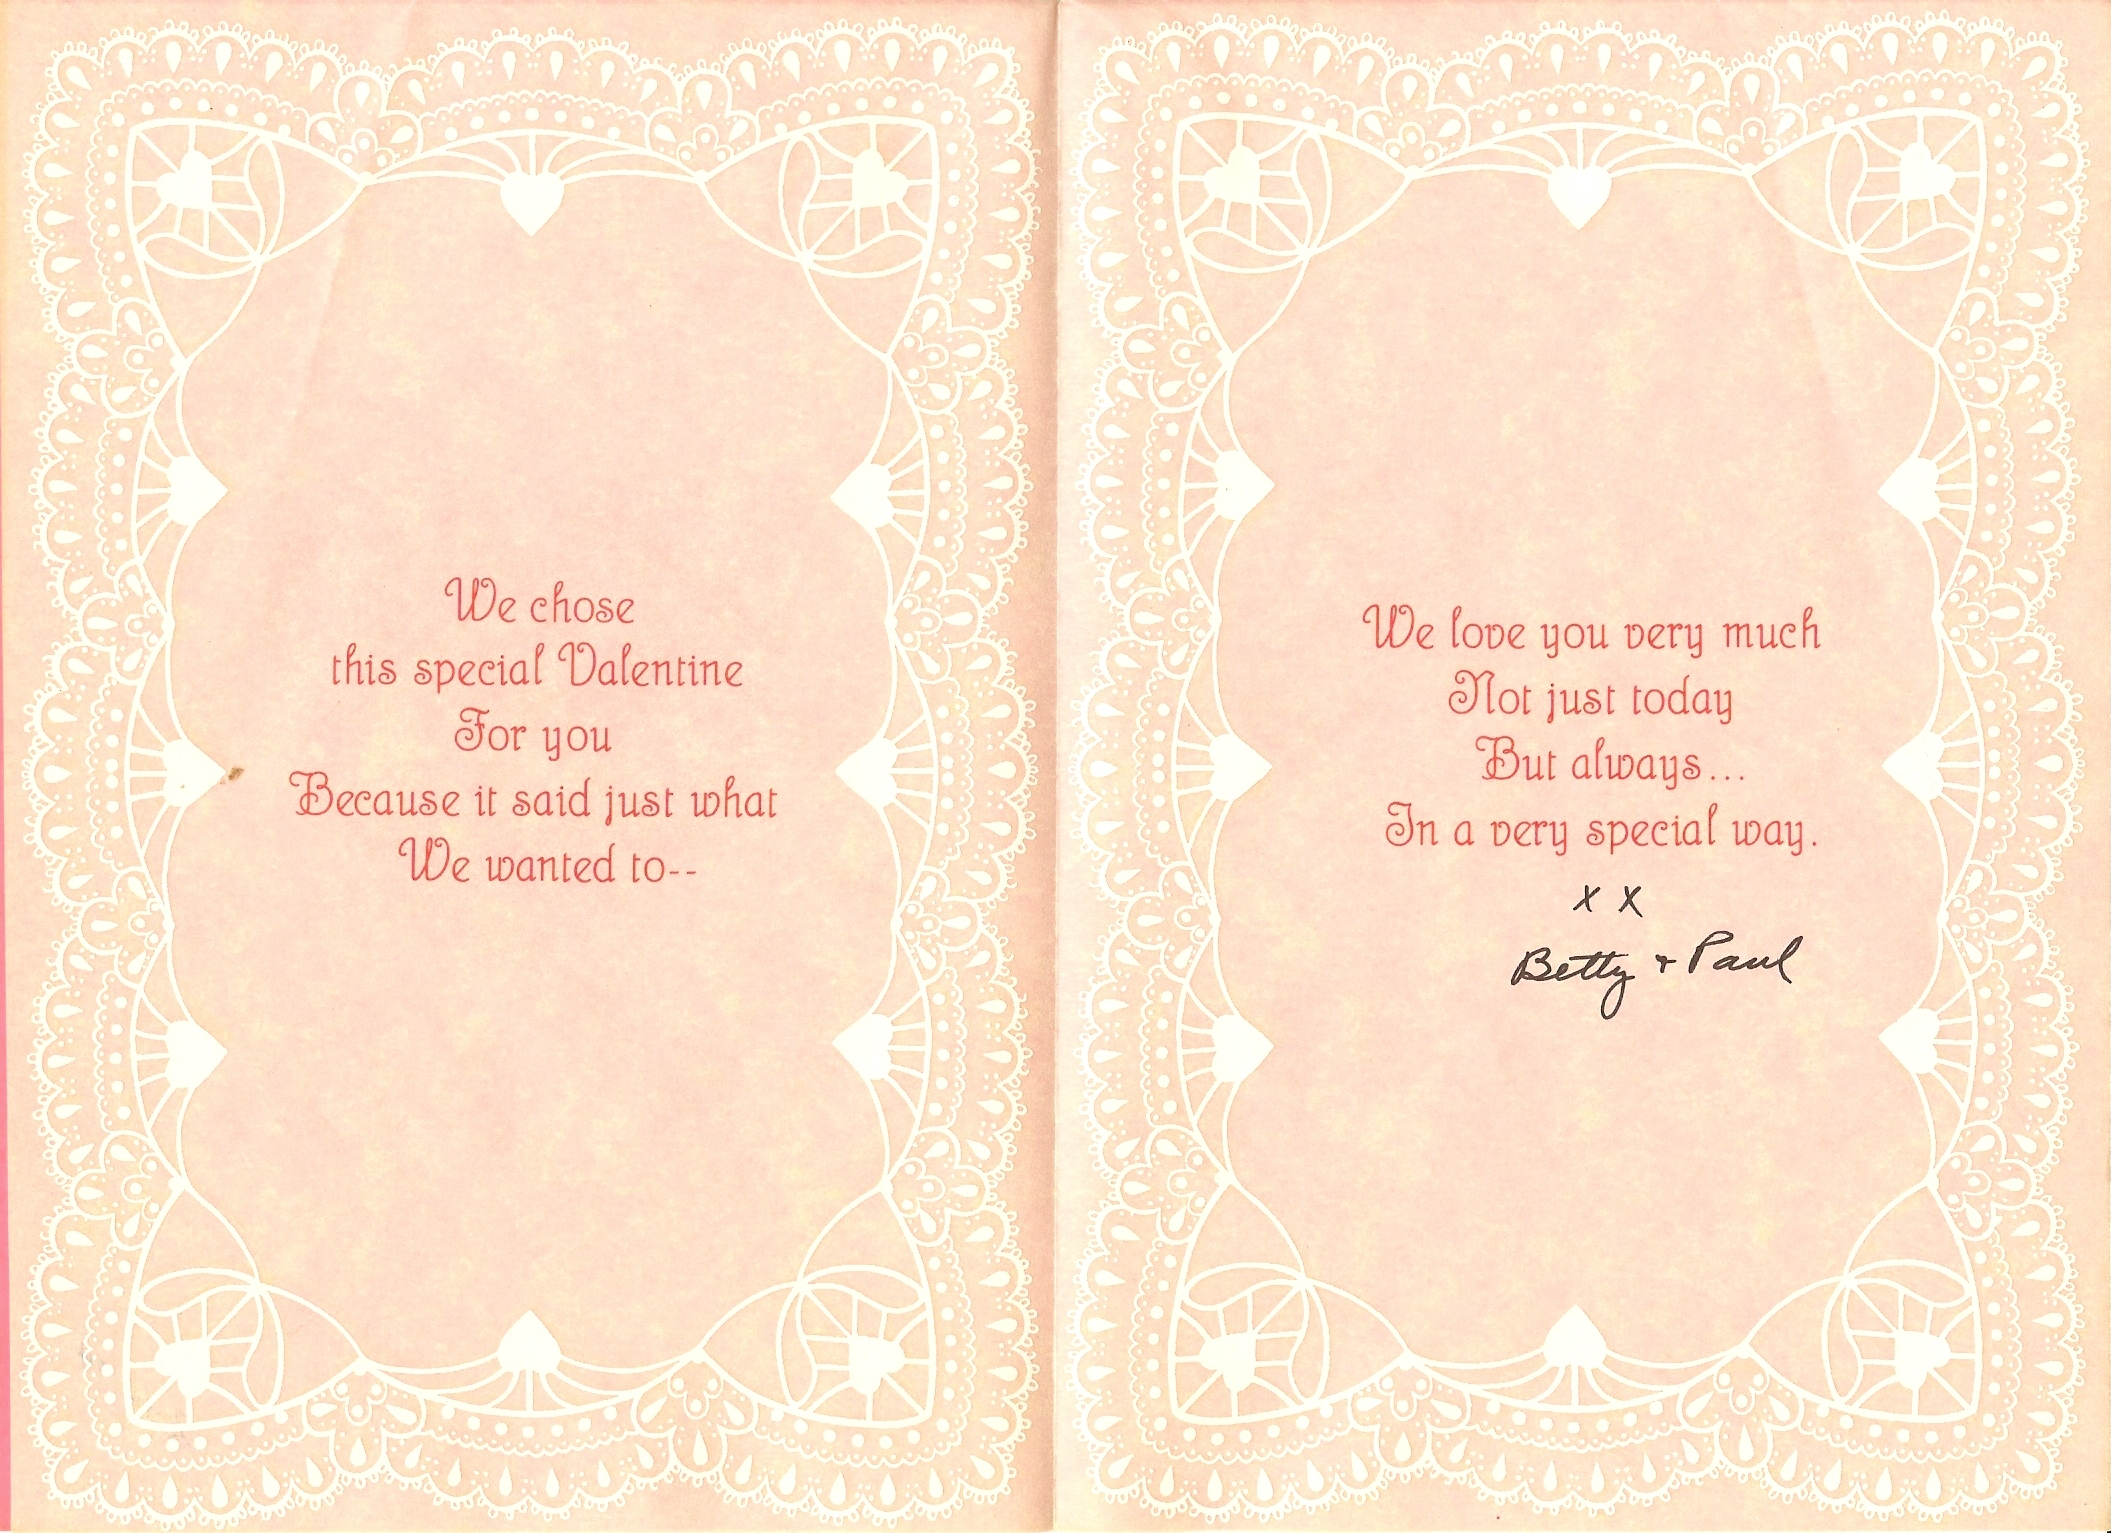 We chose
this special Valentine
For you
Because it said just what
We wanted to--
We love you very much
Not just today
But always...
In a very special way.
x x
Betty + Paul